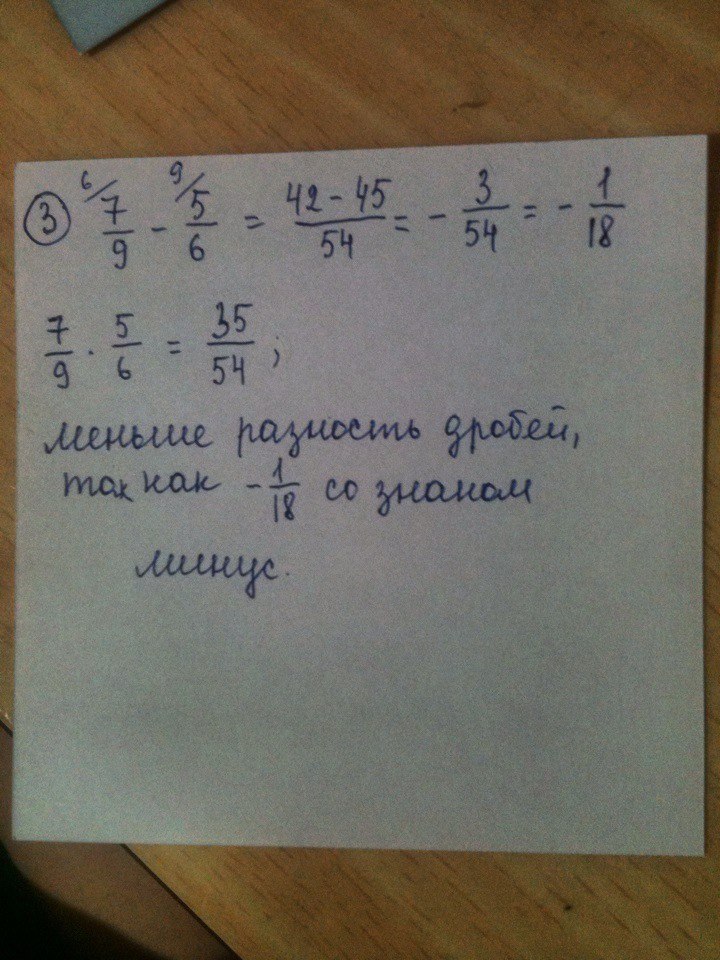 ③ ⁶/7/9 - ⁹/5/6 = (42 - 45)/54 = - 3/54 = - 1/18
7/9 · 5/6 = 35/54 ;
меньше разность дробей,
так как - 1/18 со знаком
минус.